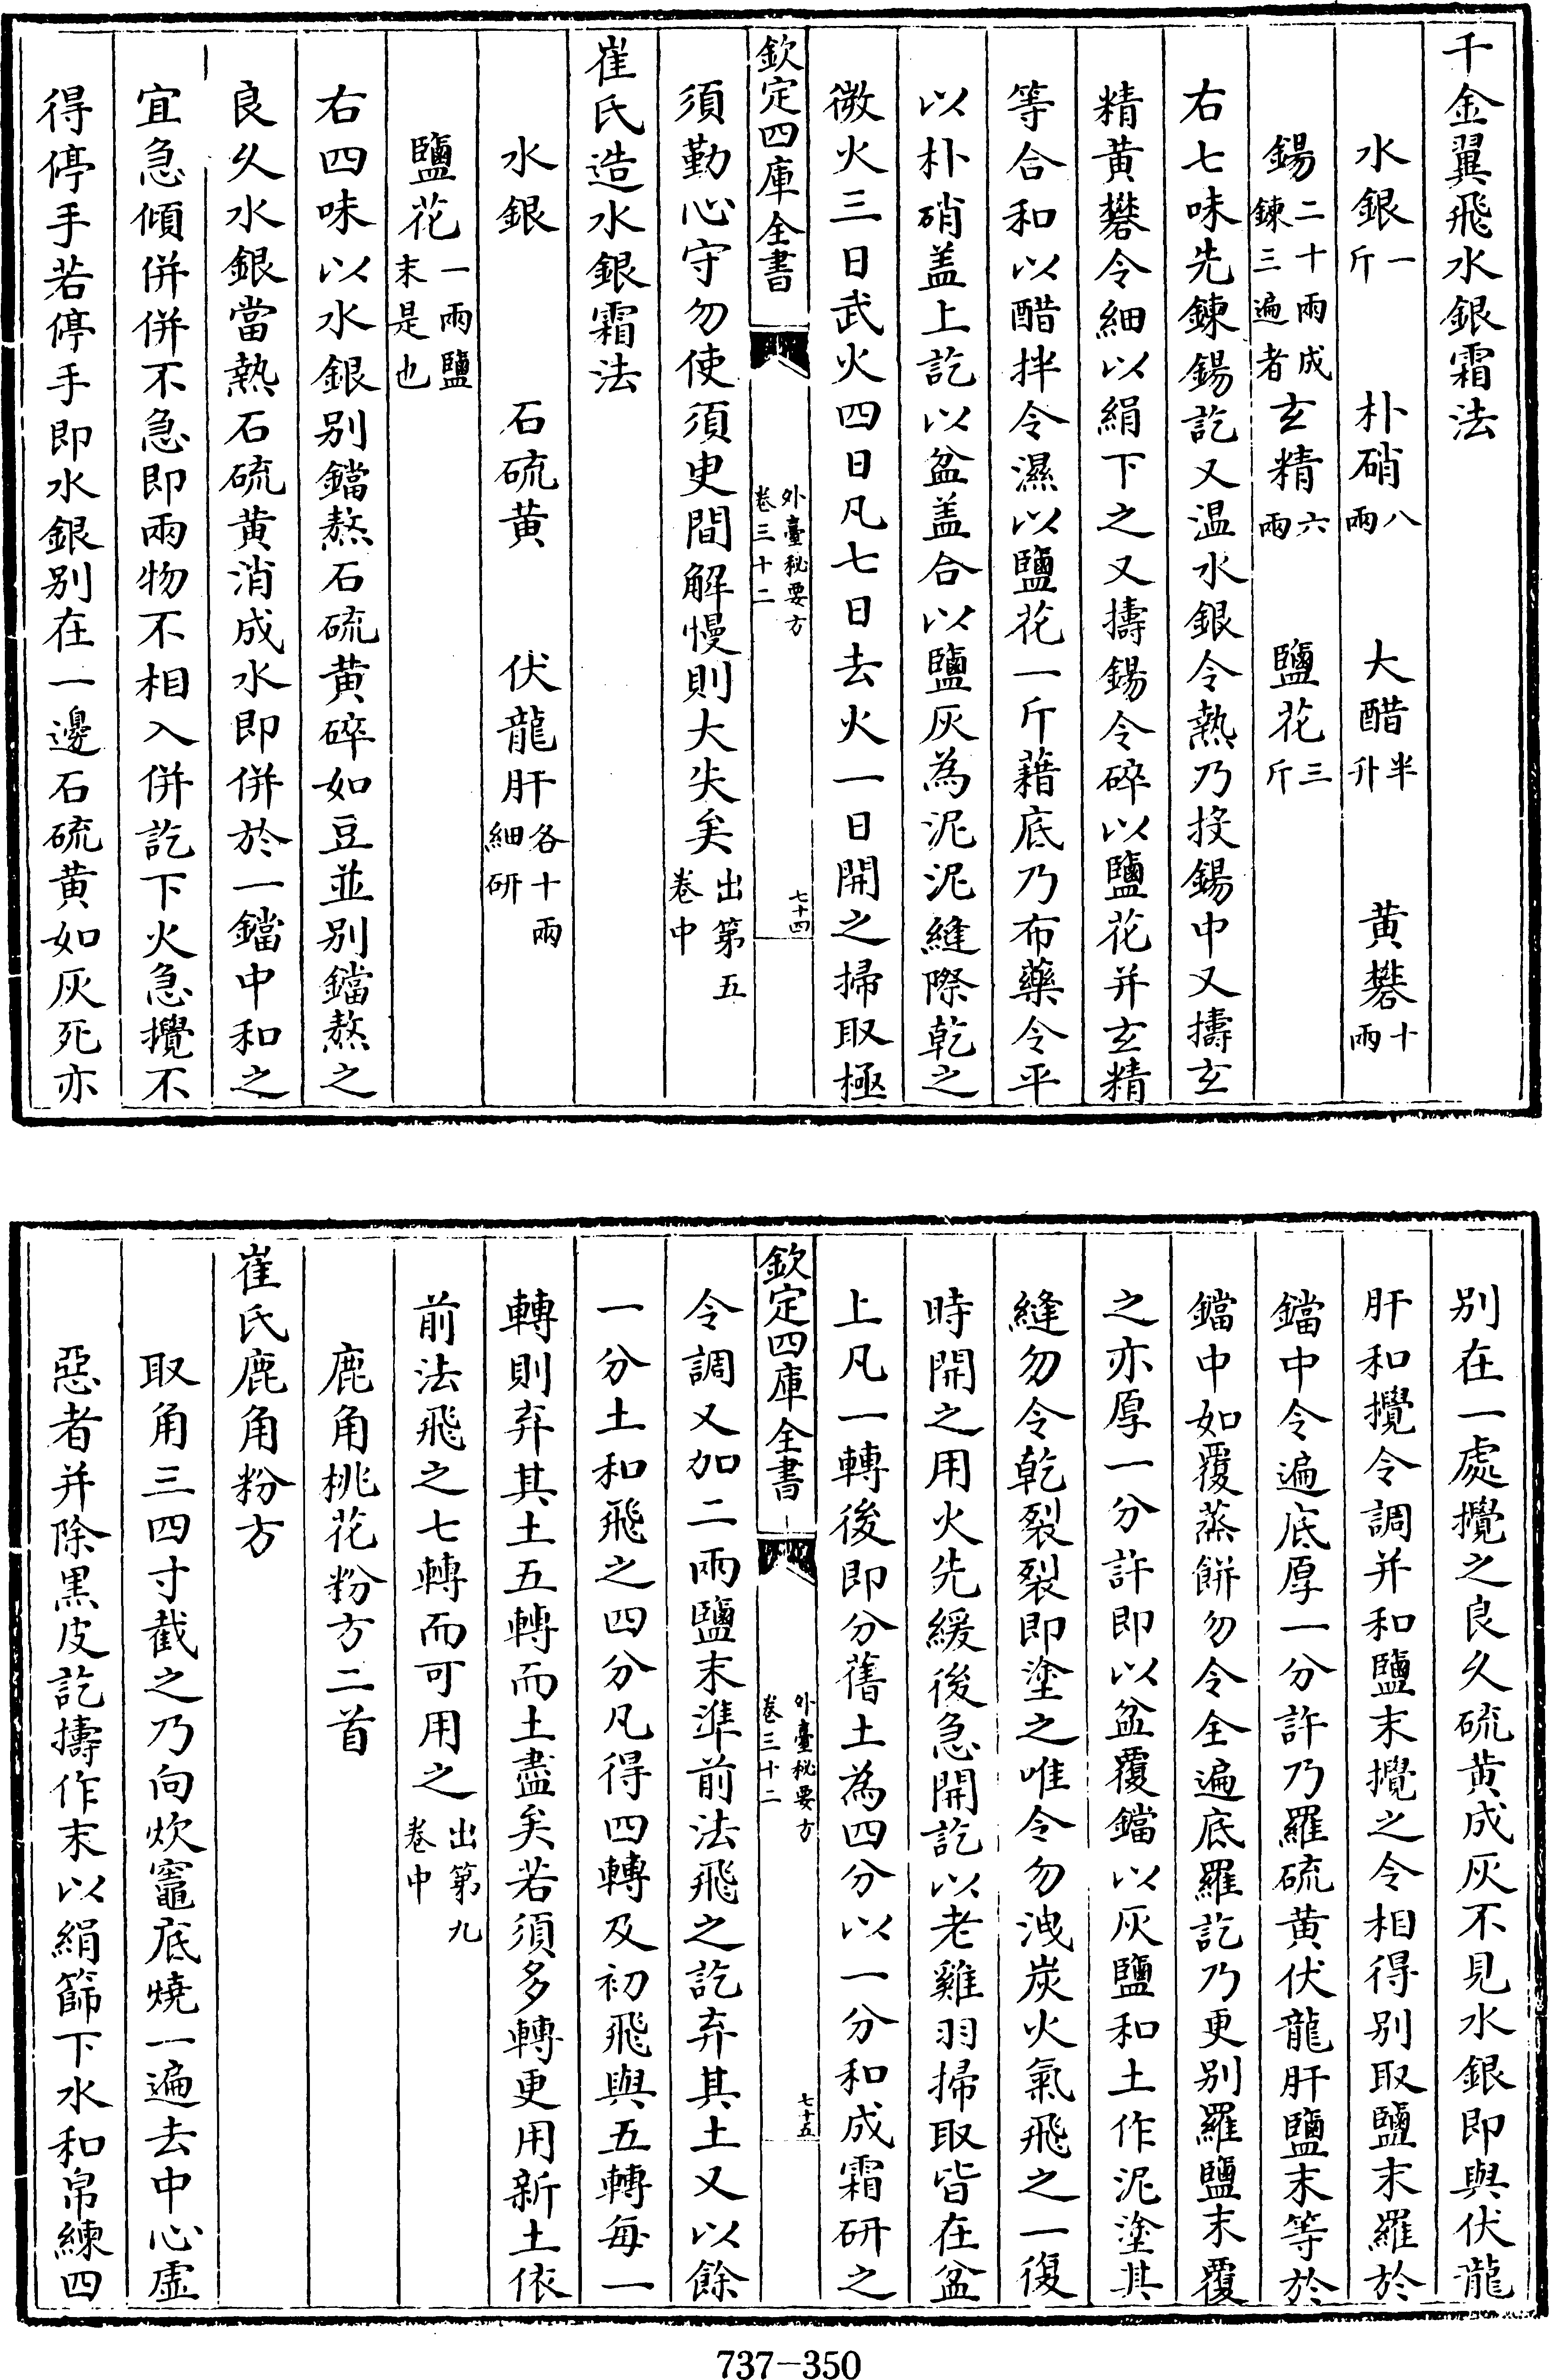 千金翼飛水銀霜法
水銀一斤 朴硝八兩 大醋半升 黄礬十兩
錫二十兩成鍊三遍者 玄精六兩 鹽花三斤
右七味先鍊錫訖又温水銀令熱乃投錫中又擣玄
精黄礬令細以絹下之又擣錫令碎以鹽花并玄精
等合和以醋拌令濕以鹽花一斤藉底乃布藥令平
以朴硝盖上訖以盆盖合以鹽灰為泥泥縫際乾之
微火三日武火四日凡七日去火一日開之掃取極
欽定四庫全書
外臺秘要方
卷三十二
七十四
須勤心守勿使須臾間解慢則大失矣出第五卷中
崔氏造水銀霜法
水銀 石硫黄 伏龍肝各十兩細研
鹽花一兩鹽末是也
右四味以水銀别鐺熬石硫黄碎如豆並别鐺熬之
良久水銀當熱石硫黄消成水即併於一鐺中和之
宜急傾併併不急即兩物不相入併訖下火急攪不
得停手若停手即水銀别在一邊石硫黄如灰死亦
别在一處攪之良久硫黄成灰不見水銀即與伏龍
肝和攪令調并和鹽末攪之令相得别取鹽末羅於
鐺中令遍底厚一分許乃羅硫黄伏龍肝鹽末等於
鐺中如覆蒸餅勿令全遍底羅訖乃更别羅鹽末覆
之亦厚一分許即以盆覆鐺以灰鹽和土作泥塗其
縫勿令乾裂裂即塗之唯令勿洩炭火氣飛之一復
時開之用火先緩後急開訖以老雞羽掃取皆在盆
上凡一轉後即分舊土為四分以一分和成霜研之
欽定四庫全書
外臺秘要方
卷三十二
七十五
令調又加二兩鹽末準前法飛之訖弃其土又以餘
一分土和飛之四分凡得四轉及初飛與五轉每一
轉則弃其土五轉而土盡矣若須多轉更用新土依
前法飛之七轉而可用之出第九卷中
鹿角桃花粉方二首
崔氏鹿角粉方
取角三四寸截之乃向炊竈底燒一遍去中心虚
惡者并除黒皮訖擣作末以絹篩下水和帛練四
737-350